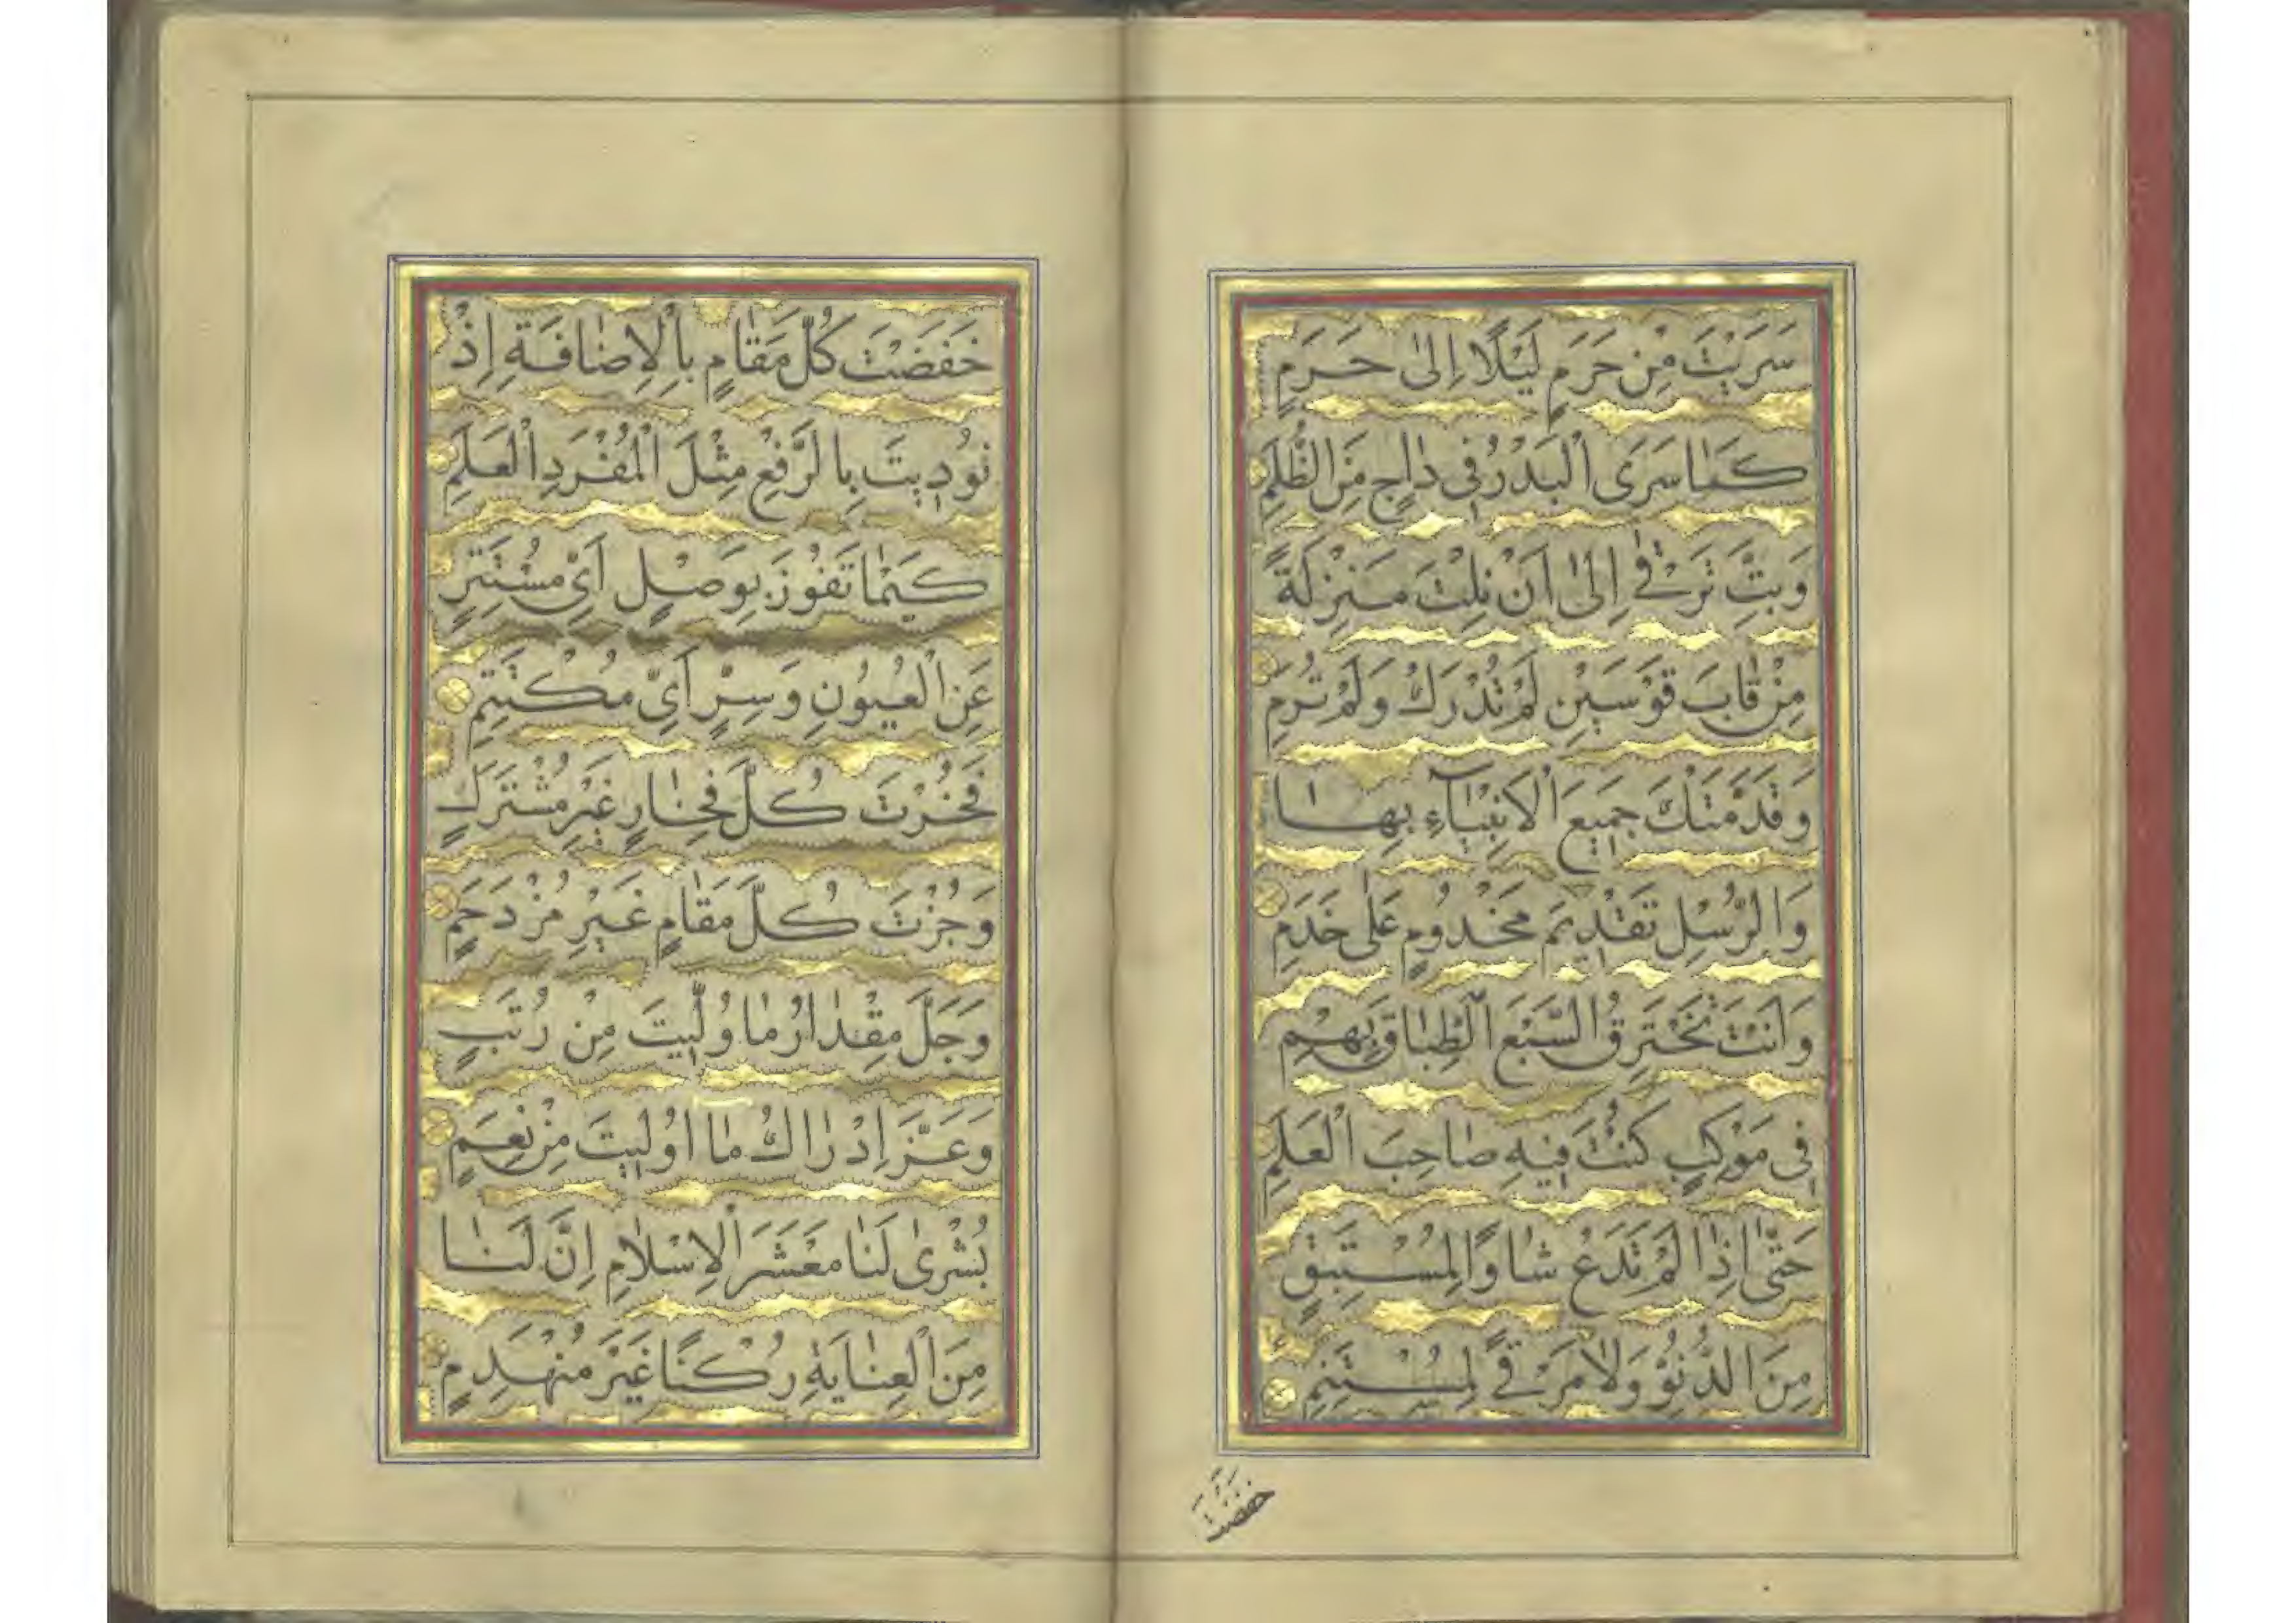 سَرَيْتَ مِنْ حَرَمٍ لَيْلًا اِلىٰ حَرَمٍ
كَمٰا سَرَى الْبَدْرُ فِى دٰاجٍ مِنَ الظُّلَمِ
وَبِتَّ تَرْقٰى اِلىٰ اَنْ نِلْتَ مَنْزِلَةً
مِنْ قٰابَ قَوْسَيْنِ لَمْ تُدْرَكْ وَلَمْ تُرَمِ
وَقَدَّمَتْكَ جَمِيعُ الْاَنْبِيٰآءِ بِهٰا
وَالرُّسُلِ تَقْدِيمَ مَخْدُومٍ عَلٰى خَدَمِ
وَاَنْتَ تَخْتَرِقُ السَّبْعَ الطِّبٰاقَ بِهِمْ
فِى مَوْكِبٍ كُنْتَ فِيهِ صٰاحِبَ الْعَلَمِ
حَتّٰى اِذٰا لَمْ تَدَعْ شٰاوًا لِمُسْتَبِقٍ
مِنَ الدُّنُوِّ وَلٰا مَرْقًى لِمُسْتَنِمِ
خَفَضْتَ
خَفَضْتَ كُلَّ مَقٰامٍ بِالْاِضٰافَةِ اِذْ
نُودِيتَ بِالرَّفْعِ مِثْلَ الْمُفْرَدِ الْعَلَمِ
كَيْمٰا تَفُوزَ بِوَصْلٍ اَىِّ مُسْتَتِرٍ
عَنِ الْعُيُونِ وَسِرٍّ اَىِّ مُكْتَتِمِ
فَحُزْتَ كُلَّ فَخٰارٍ غَيْرَ مُشْتَرَكٍ
وَجُزْتَ كُلَّ مَقٰامٍ غَيْرَ مُزْدَحَمٍ
وَجَلَّ مِقْدٰارُ مٰا وُلِّيتَ مِنْ رُتَبٍ
وَعَزَّ اِدْرٰاكُ مٰا اُولِيتَ مِنْ نِعَمٍ
بُشْرىٰ لَنٰا مَعْشَرَ الْاِسْلٰامِ اِنَّ لَنٰا
مِنَ الْعِنٰايَةِ رُكْنًا غَيْرَ مُنْهَدِمٍ